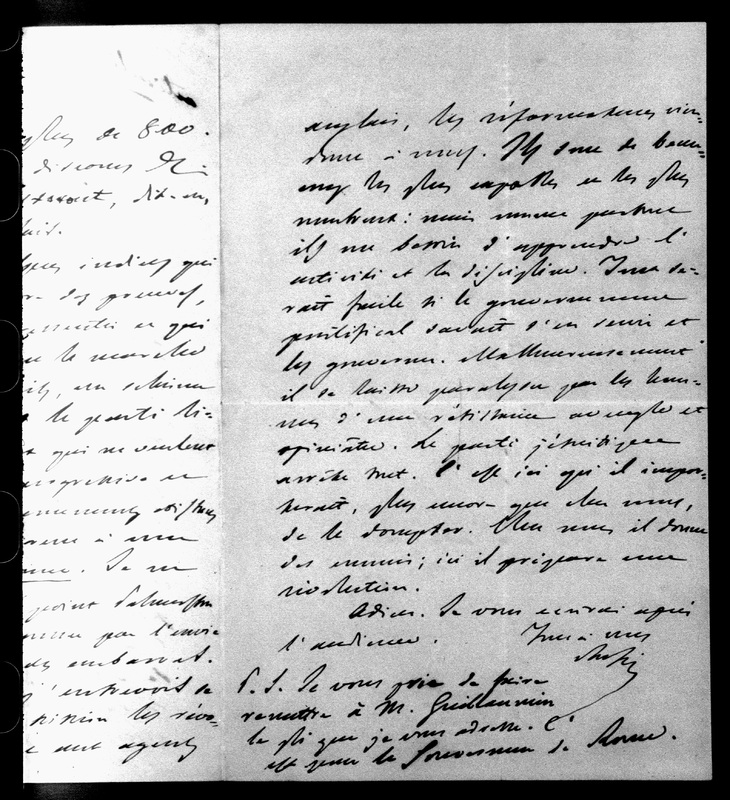 plus de 800.
discours
dit-on,
indices qui
des preuves,
et qui
le marché
le parti li-
qui ne veulent
progressive et
gouvernements existans
à une
Je ne
point Palmerston
par l'envie
des embarras.
j'entrevois de
les révo-
aux agents
anglais, les réformateurs vien-
dront à nous. Ils sont de beau-
coup les plus capables et les plus
: mais même partout
ils ont besoin d'apprendre l'
activité et la discipline. Tout se-
rait facile si le gouvernement
pontifical savait s'en servir et
les gouverner. Malheureusement
il se laisse paralyser par les hom-
mes d'une résistance aveugle et
opiniâtre. Le parti jésuitique
arrête tout. C'est ici qu'il impor-
terait, plus encore que chez nous,
de le dompter. Chez nous il donne
des ennuis; ici il prépare une
révolution.
Adieu. Je vous écrirai après
l'audience. Tout à vous
Rossi
P. S. Je vous prie de faire
remettre à M. Guillaumin
le pli que je vous adresse. C'
est pour le Souverneur de Rome.